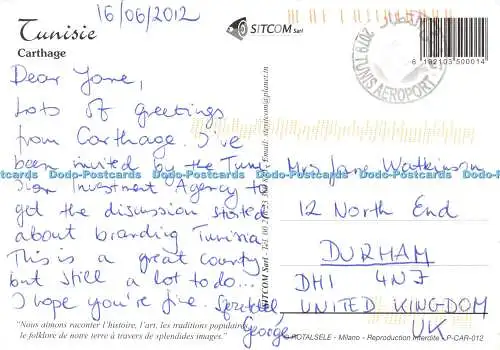 16/06/2012
Tunisie
Carthage
SITCOM Sarl
6 192103 500014
2079 TUNIS AEROPORT
Dear Jane,
Lots of greetings
from Carthage. I've
been invited by the Tuni
sian Investment Agency to
get the discussion started
about branding Tunisia
This is a great county
but still a lot to do...
I hope you're fine.
George
Mrs Jane Watkinson
12 North End
DURHAM
DH1 4NJ
UNITED KINGDOM
UK
SITCOM Sarl. Tel. 00 216 Email: sitcom@planet.tn
Dodo-Postcards Dodo-Postcards Dodo-Postcards Dodo-Postcards
"Nous aimons raconter l'histoire, l'art, les traditions populaires
le folklore de notre terre à travers de splendides images."
© ROTALSELE - Milano - Reproduction interdite - P-CAR-012